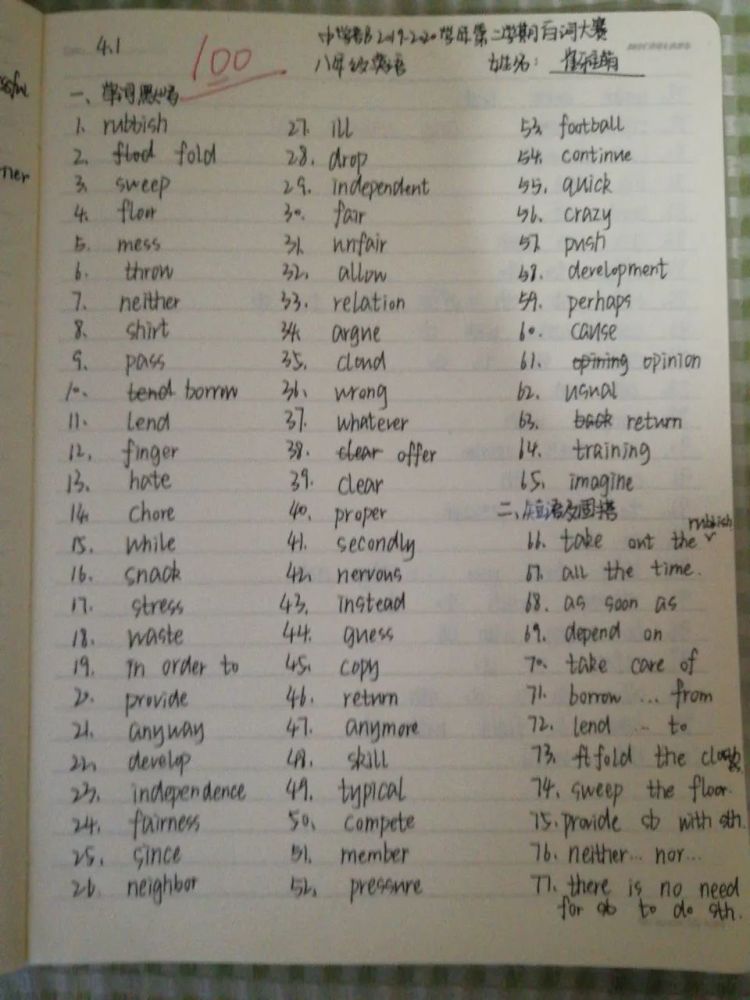 4.1
100
中学部2019-2020学年第二学期百词大赛
八年级英语 姓名:
一、单词默写
1. rubbish
2. flod fold
3. sweep
4. floor
5. mess
6. throw
7. neither
8. shirt
9. pass
10. tend borrow
11. lend
12. finger
13. hate
14. chore
15. while
16. snack
17. stress
18. waste
19. in order to
20. provide
21. anyway
22. develop
23. independence
24. fairness
25. since
26. neighbor
27. ill
28. drop
29. independent
30. fair
31. unfair
32. allow
33. relation
34. argue
35. cloud
36. wrong
37. whatever
38. clear offer
39. clear
40. proper
41. secondly
42. nervous
43. instead
44. guess
45. copy
46. return
47. anymore
48. skill
49. typical
50. compete
51. member
52. pressure
53. football
54. continue
55. quick
56. crazy
57. push
58. development
59. perhaps
60. cause
61. opining opinion
62. usual
63. back return
64. training
65. imagine
二、短语及固搭
66. take out the rubbish
67. all the time.
68. as soon as
69. depend on
70. take care of
71. borrow ... from
72. lend ... to
73. fold the
74. sweep the floor.
75. provide sb with sth.
76. neither... nor...
77. there is no need
for sb to do sth.